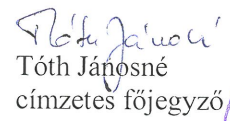 Tóth Jánosné
Tóth Jánosné
címzetes főjegyző